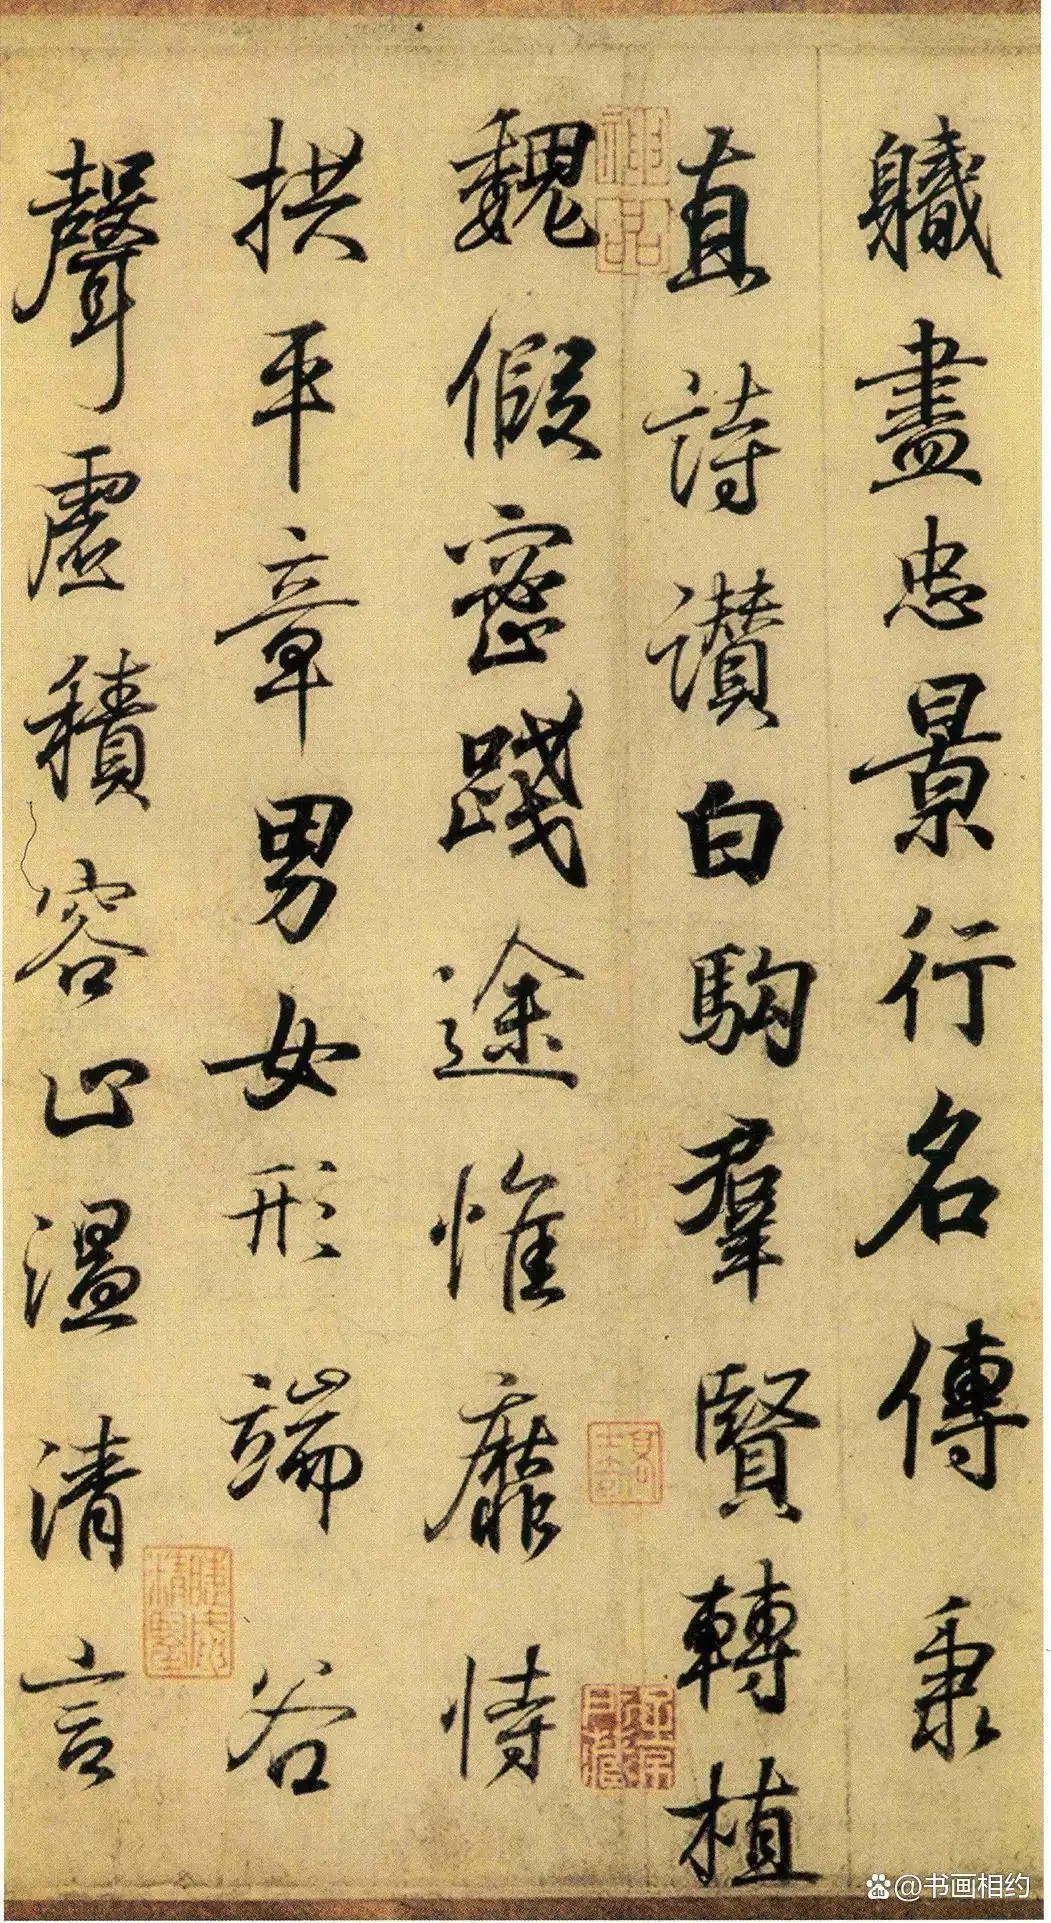 軄盡忠景行名傳秉
直詩讃白駒羣賢轉植
魏假密踐途惟靡恃
拱平章男女形端谷
聲虛積容止温清言
神品
@书画相约